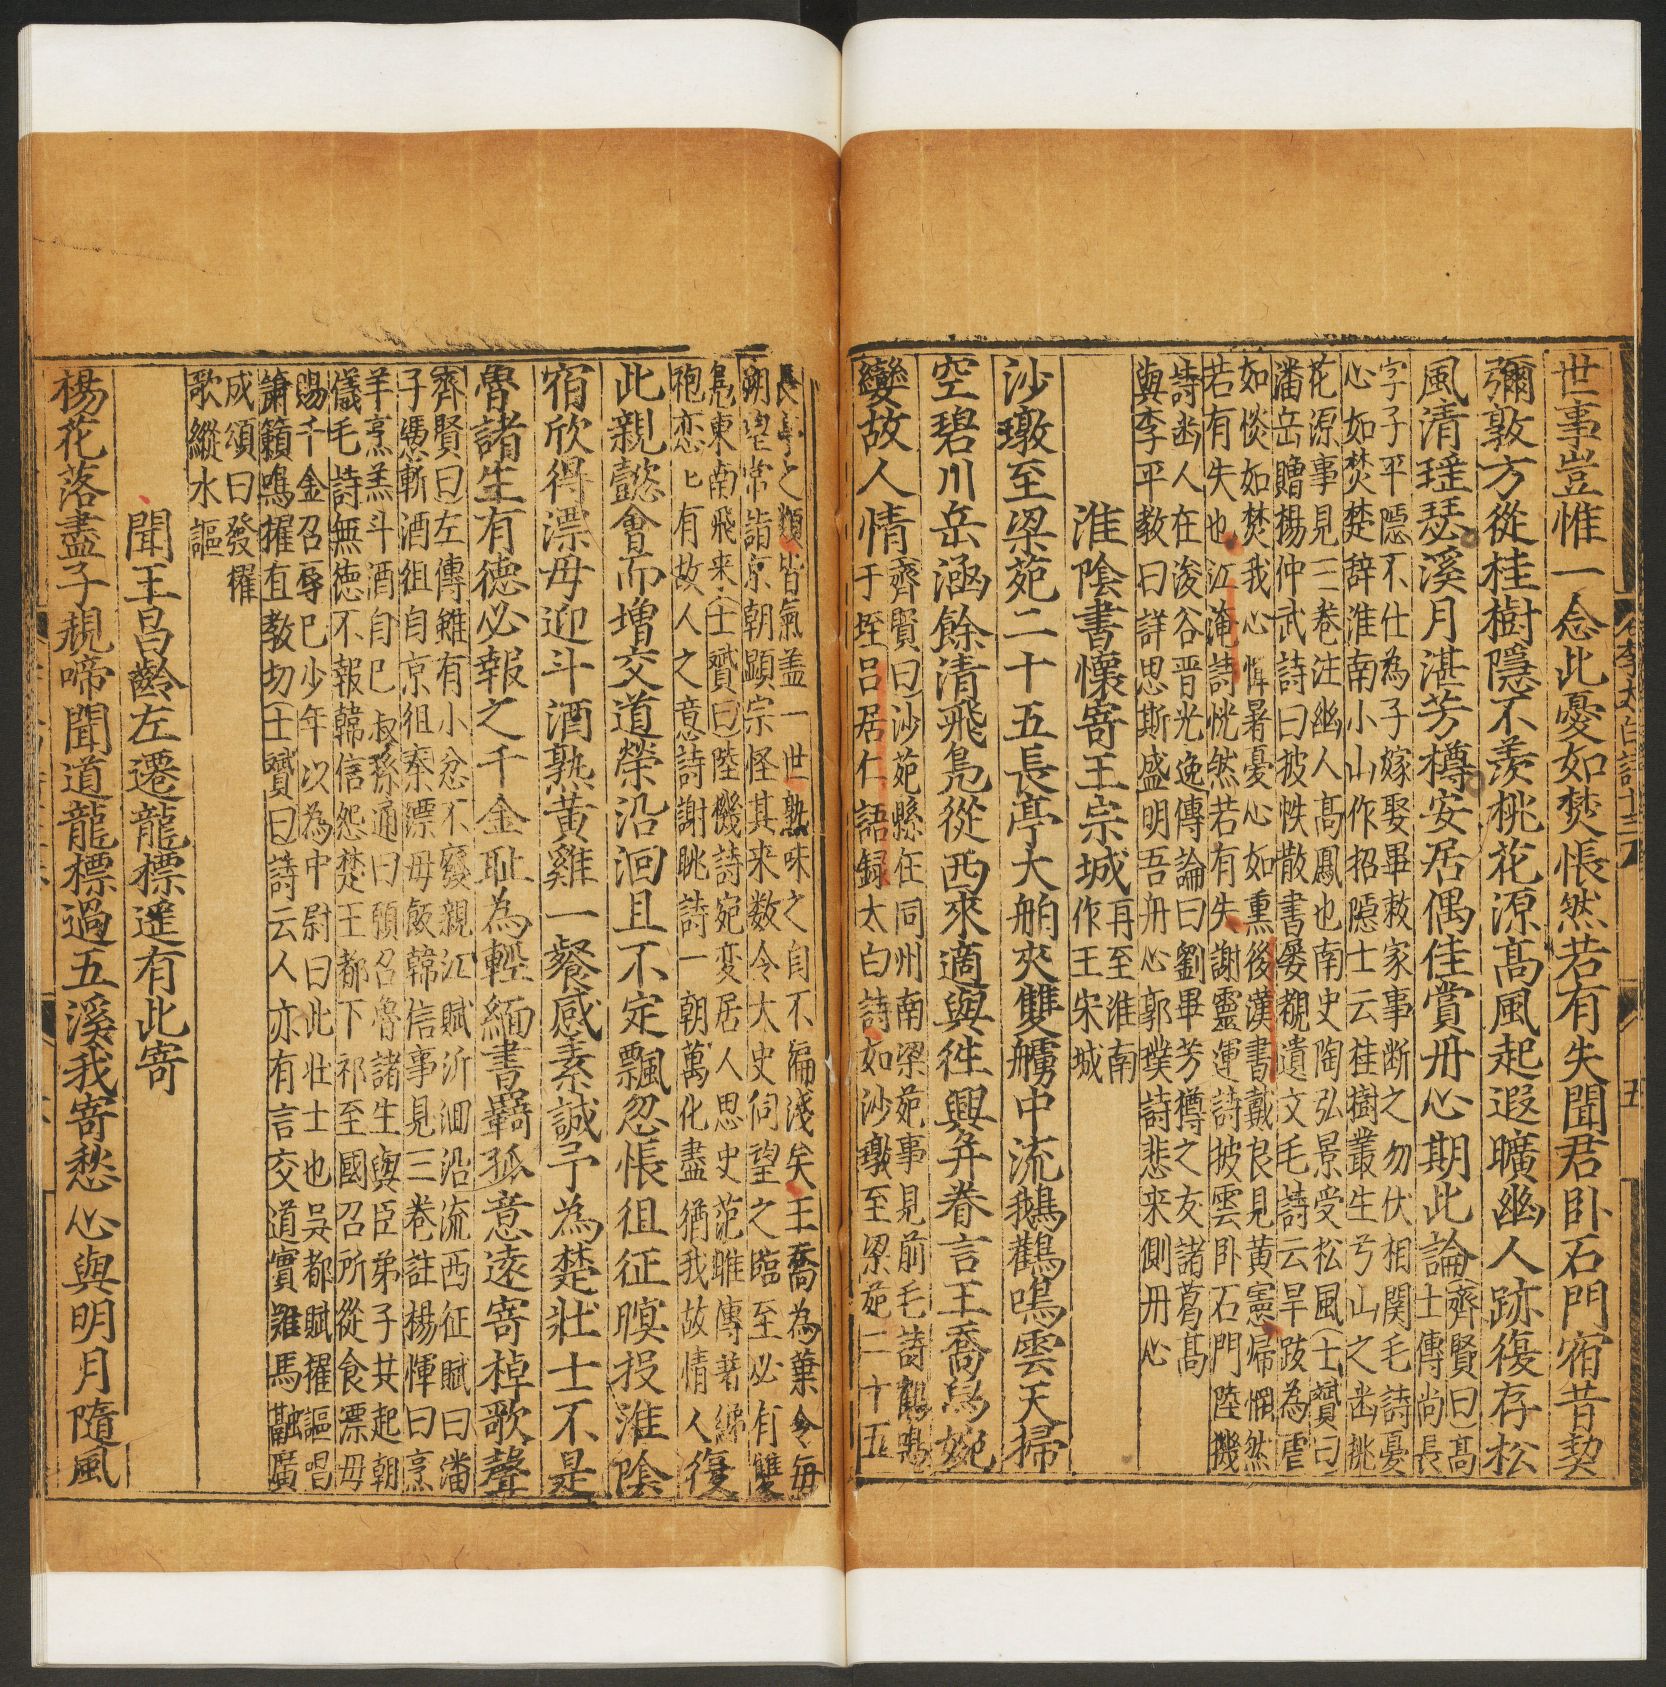 世事豈惟一念此憂如焚悵然若有失聞君卧石門宿昔契
彌敦方從桂樹隱不羨桃花源髙風起遐曠幽人跡復存松
風清瑶瑟溪月湛芳樽安居偶佳賞丹心期此論
齊賢曰髙士傳尚長
字子平隱不仕為子嫁娶畢敕家事断之勿伏相関毛詩憂
心如焚楚辞淮南小山作招隠士云桂樹叢生兮山之幽桃
花源事見二卷注幽人髙鳳也南史陶弘景受松風士贇曰
潘岳贈楊仲武詩曰披帙散書屡覩遺文毛詩云旱跋為虐
如惔如焚我心憚暑憂心如熏後漢書戴良見黄憲帰惘然
若有失也江淹詩恍然若有失謝靈運詩披雲卧石門陸機
詩幽人在浚谷晋光逸傳論曰劉畢芳樽之友諸葛髙
與李平教曰詳思斯盛明吾丹心郭璞詩悲来惻丹心
淮陰書懷寄王宗城
再至淮南
作王宋城
沙墩至梁苑二十五長亭大舶夾雙艣中流鵝鸛鳴雲天掃
空碧川岳涵餘清飛鳬從西來適與徃興并眷言王喬舄婉
孌故人情
齊賢曰沙苑縣在同州南梁苑事見前毛詩鸛鳴
于垤吕居仁語録太白詩如沙墩至梁苑二十五
長亭之類皆氣盖一世熟味之自不褊淺矣王喬為葉令每
朔望常詣京朝顕宗怪其来数令大史伺望之臨至必有雙
鳬東南飛来士贇曰陸機詩宛変居人思史范雎傳著綈
袍恋匕有故人之意詩謝眺詩一朝萬化盡猶我故情人
復
此親懿會而增交道榮沿洄且不定飄忽悵徂征暝投淮陰
宿欣得漂母迎斗酒熟黄雞一餐感素誠予為楚壮士不是
魯諸生有德必報之千金耻為輕緬書羇孤意遠寄棹歌聲
齊賢曰左傳雖有小忿不廢親江賦沂洄沿流西征賦曰潘
子馮斬酒徂自京徂秦漂母飯韓信事見三卷註楊惲曰烹
羊烹羔斗酒自巳叔孫通曰頗召魯諸生與臣弟子共起朝
儀毛詩無徳不報韓信怨楚王都下祁至國召所從食漂毋
賜千金召辱巳少年以為中尉曰此壮士也吴都賦擢謳唱
簫籟鳴擢直教切士贇曰詩云人亦有言交道實難馬融廣
成頌曰發櫂
歌縱水謳
聞王昌齡左遷龍標遥有此寄
楊花落盡子規啼聞道龍標過五溪我寄愁心與明月隨風